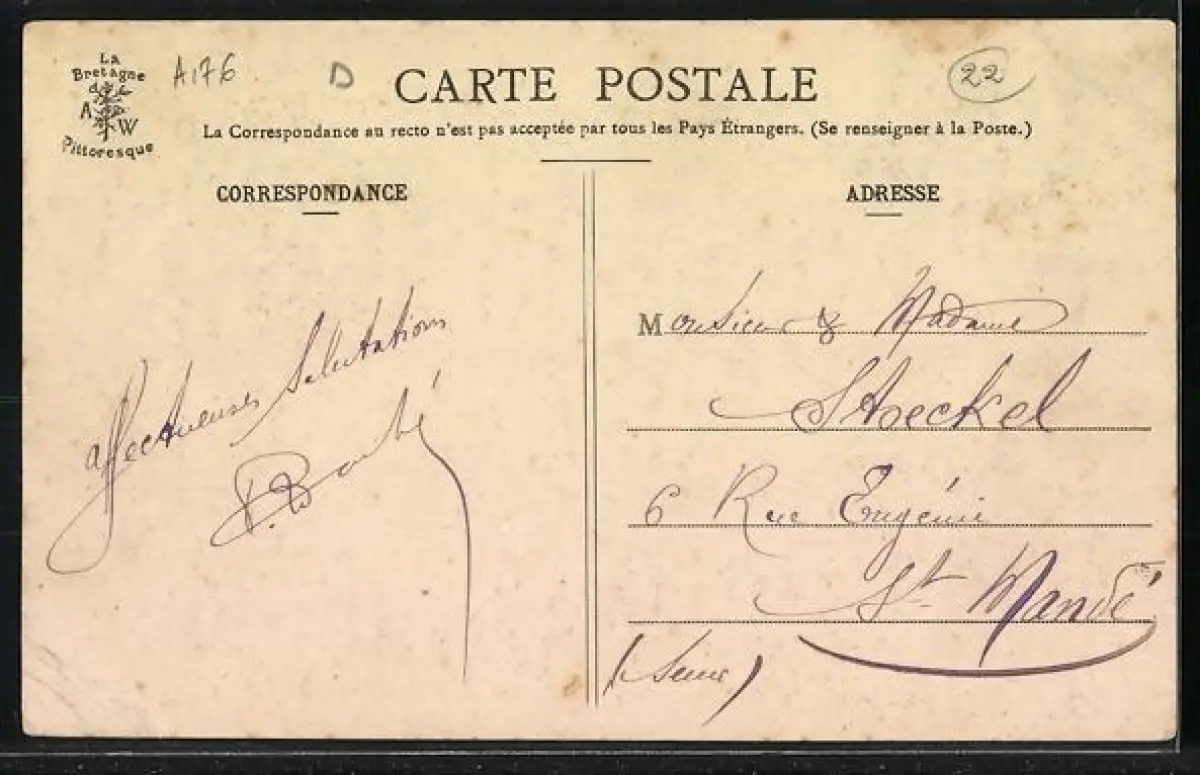 La
Bretagne
A W
Pittoresque
A176
D
CARTE POSTALE
22
La Correspondance au recto n'est pas acceptée par tous les Pays Étrangers. (Se renseigner à la Poste.)
CORRESPONDANCE
affectueuses Salutations
ADRESSE
Monsieur & Madame
Stoeckel
6 Rue Eugénie
St Mandé
(Seine)